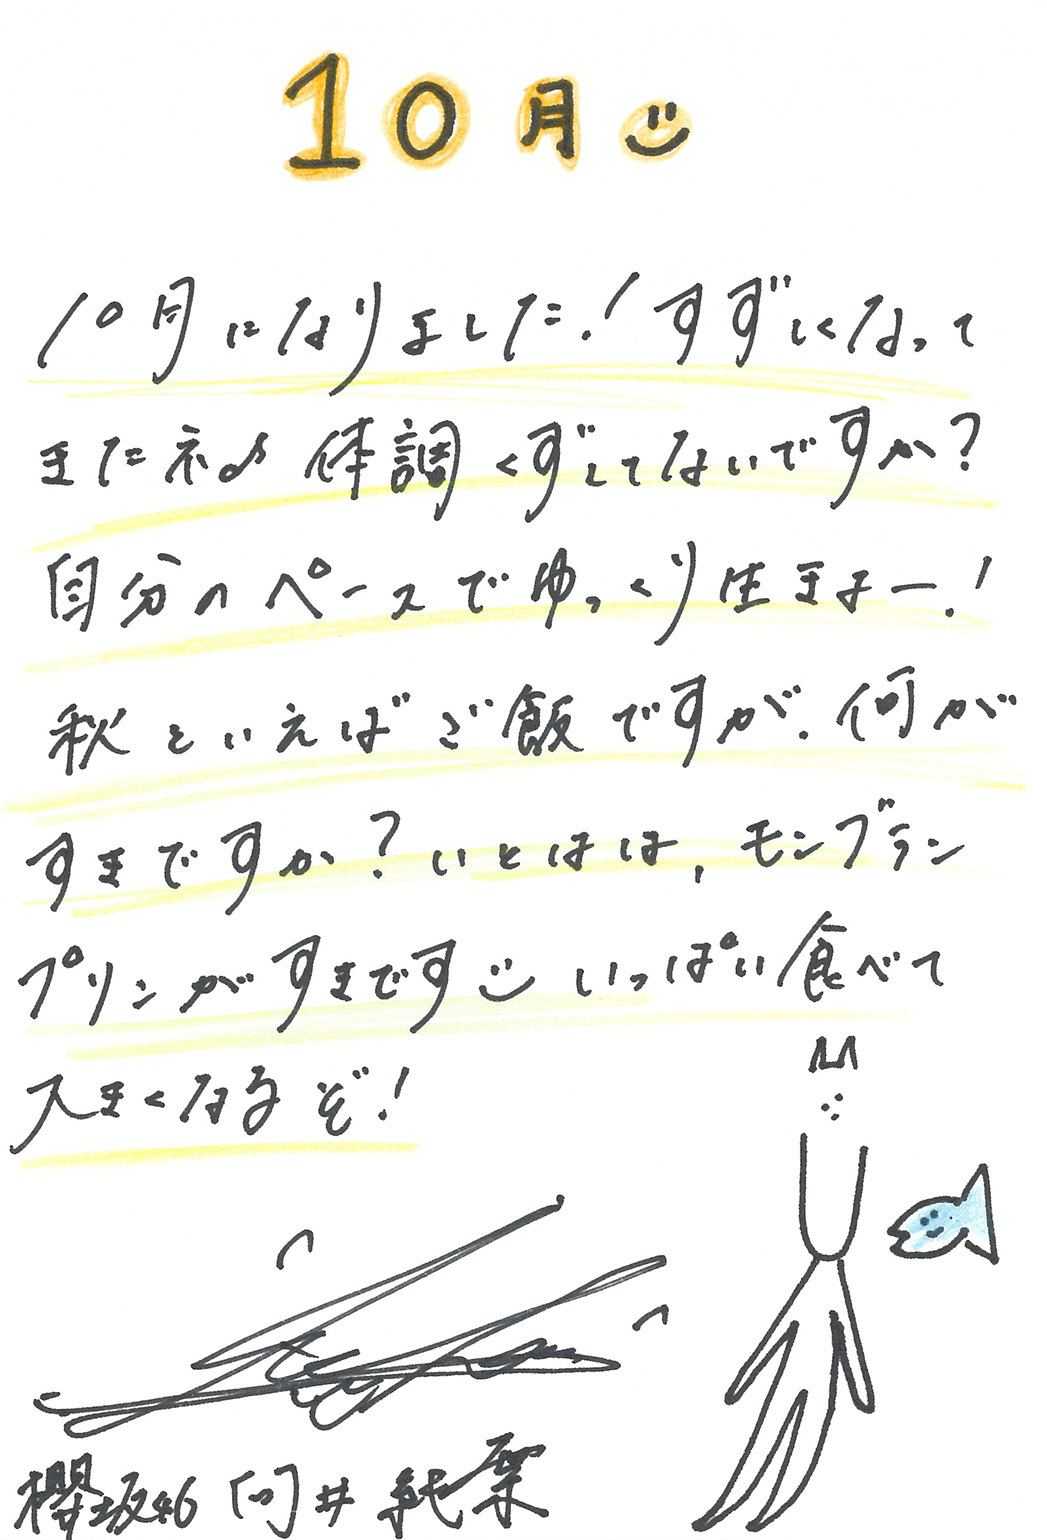 10月
10月になりました!すずしくなって
きたネ♪ 体調くずしてないですか?
自分のペースでゆっくり生きよー!
秋といえばご飯ですが、何が
すきですか?いとはは、モンブラン
プリンがすきです いっぱい食べて
大きくなるぞ!
櫻坂46 向井純葉